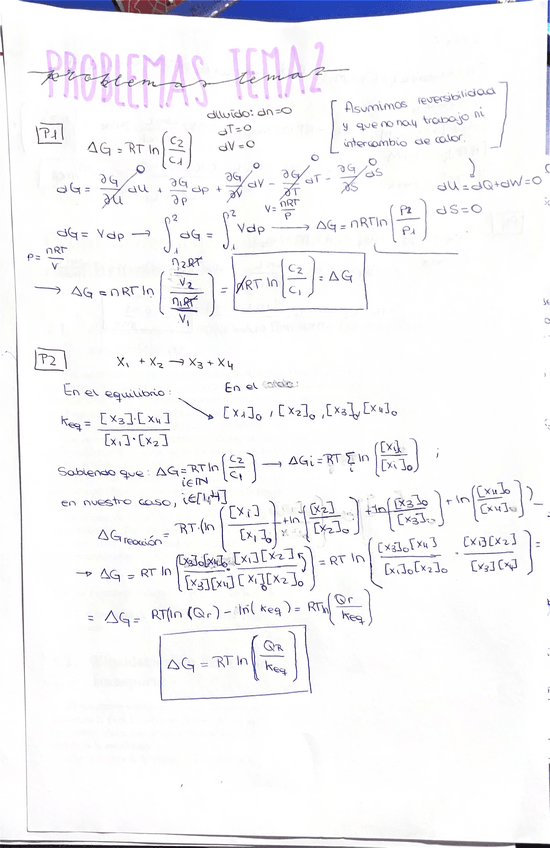 PROBLEMAS TEMA 2
problemas tema 2
P1
ΔG = RT ln(C2/C1)
diluido: dn=0
dT=0
dV=0
[Asumimos reversibilidad
y que no hay trabajo ni
intercambio de calor.]
dU=dQ+dW=0
dS=0
dG = ∂G/∂U dU + ∂G/∂p dp + ∂G/∂V dV - ∂G/∂T dT - ∂G/∂S dS
0 0 0 0
dG = Vdp → ∫₁² dG = ∫₁² Vdp → ΔG = nRT ln(P2/P1)
V = nRT/P
P = nRT/V
→ ΔG = nRT ln((n2RT/V2)/(n1RT/V1)) = nRT ln(C2/C1) = ΔG
P2
X1 + X2 → X3 + X4
En el equilibrio:
En el
Keq = [X3]·[X4]/[X1]·[X2]
[X1]₀, [X2]₀, [X3]₀, [X4]₀
Sabiendo que: ΔG = RT ln(C2/C1) → ΔGi = RT Σi ln([Xi]/[Xi]₀);
i∈ℕ
en nuestro caso, i∈[1,4]
ΔGreacción = RT·(ln([Xi]/[X1]₀) + ln([X2]/[X2]₀) + ln([X3]₀/[X3]) + ln([X4]₀/[X4]))
→ ΔG = RT ln([X3]₀[X4]₀/[X3][X4] · [X1][X2]/[X1]₀[X2]₀) = RT ln([X3]₀[X4]/[X1]₀[X2]₀ · [X1][X2]/[X3][X4]) =
= ΔG = RT(ln(Qr) - ln(Keq)) = RT ln(Qr/Keq)
ΔG = RT ln(QR/Keq)